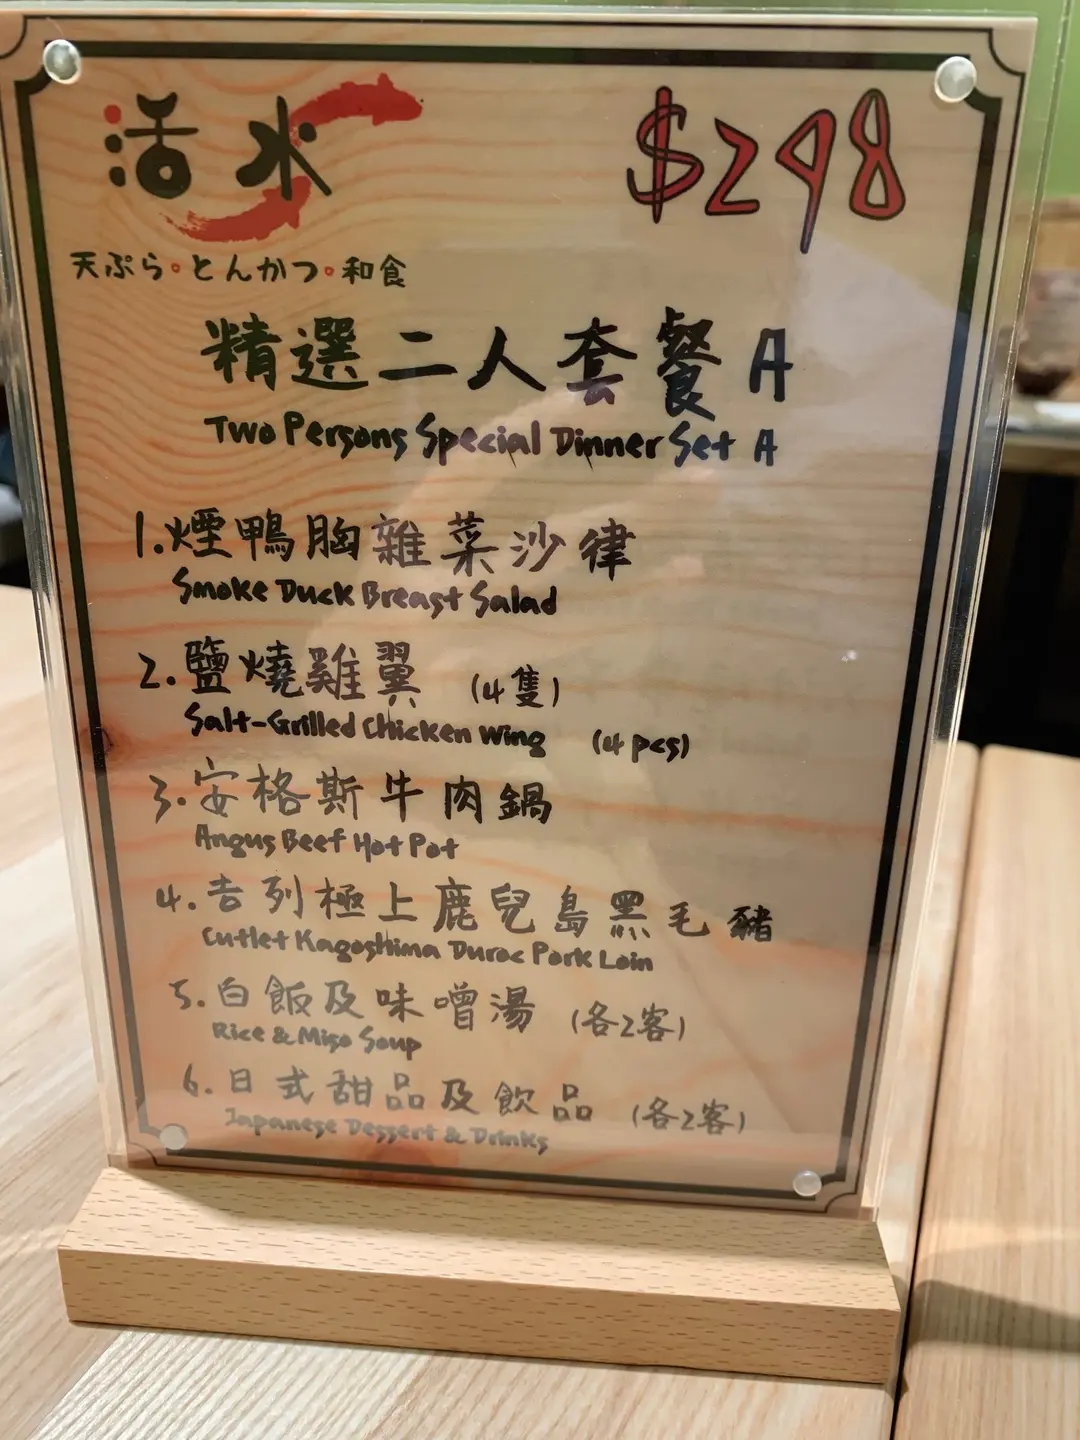 活水
$298
天ぷら・とんかつ・和食
精選二人套餐 A
Two Persons Special Dinner Set A
1.煙鴨胸雜菜沙律
Smoke Duck Breast Salad
2.鹽燒雞翼 (4隻)
Salt-Grilled Chicken Wing (4 pcs)
3.安格斯牛肉鍋
Angus Beef Hot Pot
4.吉列極上鹿兒島黑毛豬
Cutlet Kagoshima Duroc Pork Loin
5.白飯及味噌湯 (各2客)
Rice & Miso Soup
6.日式甜品及飲品 (各2客)
Japanese Dessert & Drinks